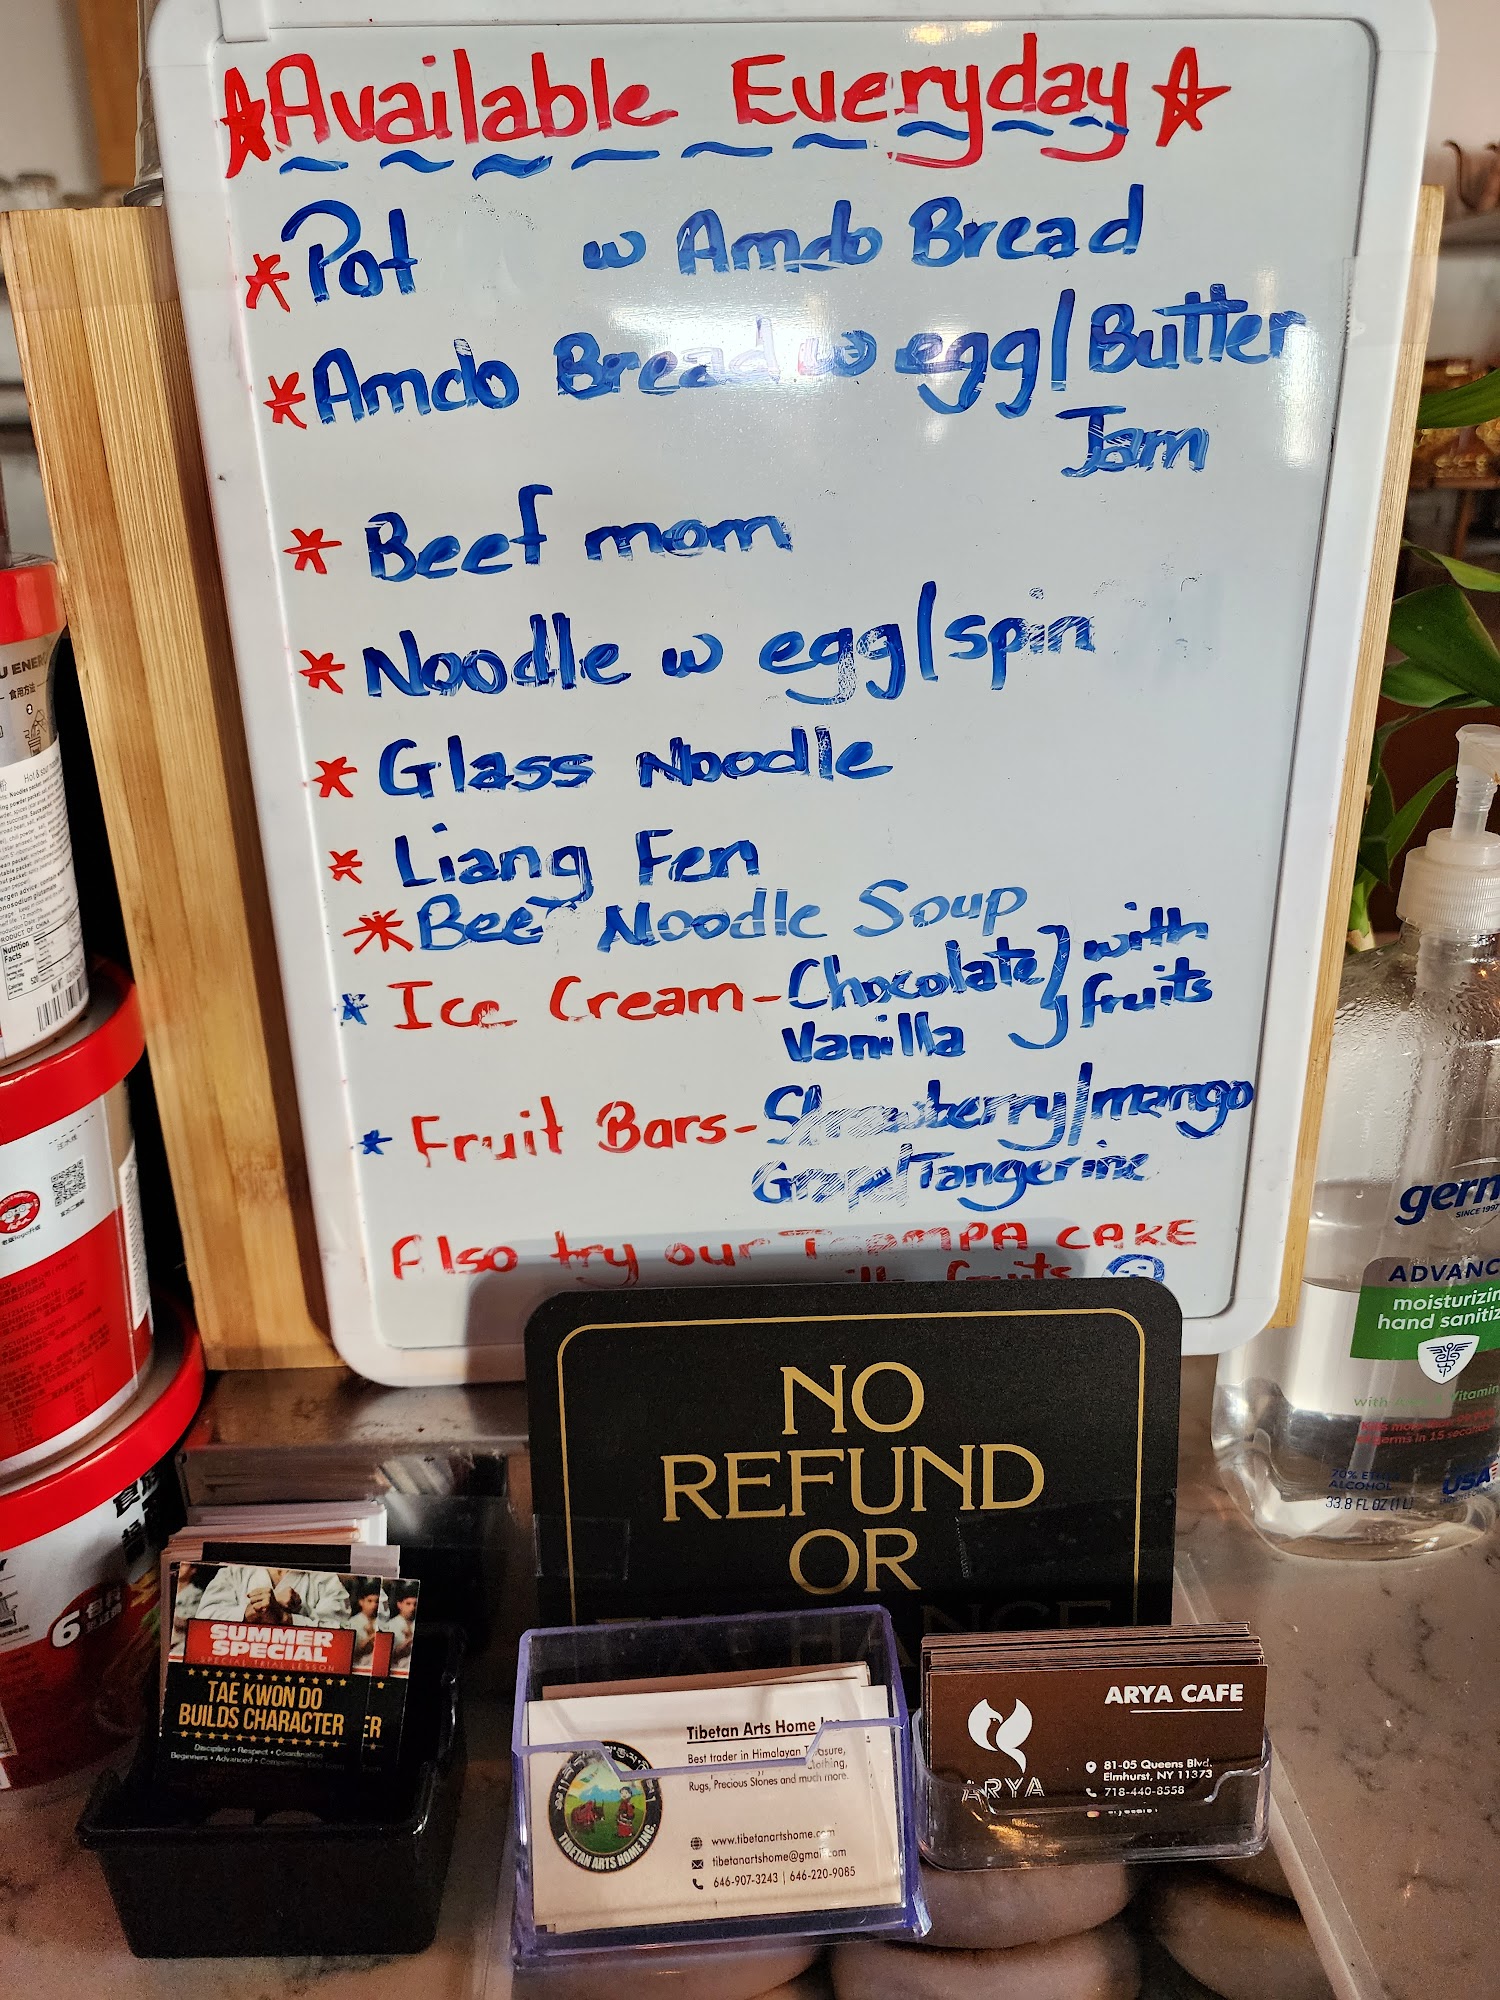 Available Everyday
Pot w Amdo Bread
Amdo Bread w egg/Butter
Jam
Beef mom
Noodle w egg/spin
Glass Noodle
Liang Fen
Beef Noodle Soup
Ice Cream - Chocolate } with
Vanilla fruits
Fruit Bars - Strawberry/mango
Grape/Tangerine
Also try our TSAMPA CAKE
fruits
NO
REFUND
OR
EXCHANGE
SUMMER
SPECIAL
SPECIAL TRIAL LESSON
TAE KWON DO
BUILDS CHARACTER
Discipline • Respect • Coordination
ER
Tibetan Arts Home Inc.
Best trader in Himalayan Treasure,
Clothing,
Rugs, Precious Stones and much more.
www.tibetanartshome.com
tibetanartshome@gmail.com
646-907-3243 | 646-220-9085
TIBETAN ARTS HOME INC.
ARYA CAFE
ARYA
81-05 Queens Blvd.
Elmhurst, NY 11373
718-440-8558
germ
SINCE 1997
ADVANC
moisturizin
hand sanitiz
70% ETHYL
ALCOHOL
33.8 FL OZ (1 L)
USA
U ENER
食用方法
Hot & sour
PRODUCT OF CHINA
Nutrition
Facts
6